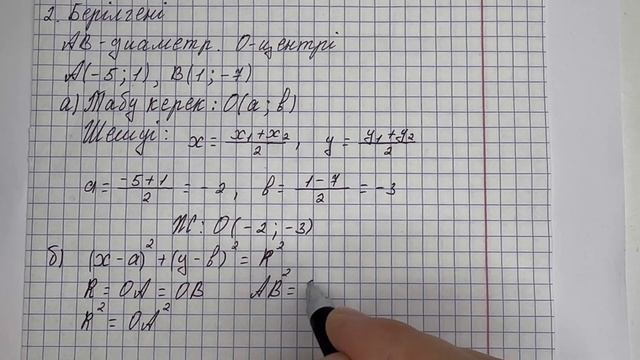 2. Берілгені
AB - диаметр. O - центрі
A(-5; 1), B(1; -7)
а) Табу керек: O(a; b)
Шешуі: x = (x₁+x₂)/2, y = (y₁+y₂)/2
a = (-5+1)/2 = -2, b = (1-7)/2 = -3
Ж: O(-2; -3)
б) (x-a)² + (y-b)² = R²
R = OA = OB AB² =
R² = OA²